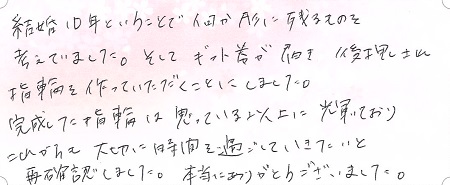 結婚10年ということで何か形に残るものを
考えていました。そして ギット者が届き 後押しされ
指輪を作っていただくことにしました。
完成した指輪は思っている以上に光輝いており
これからも大切に時間を過ごしていきたいと
再確認しました。本当にありがとうございました。